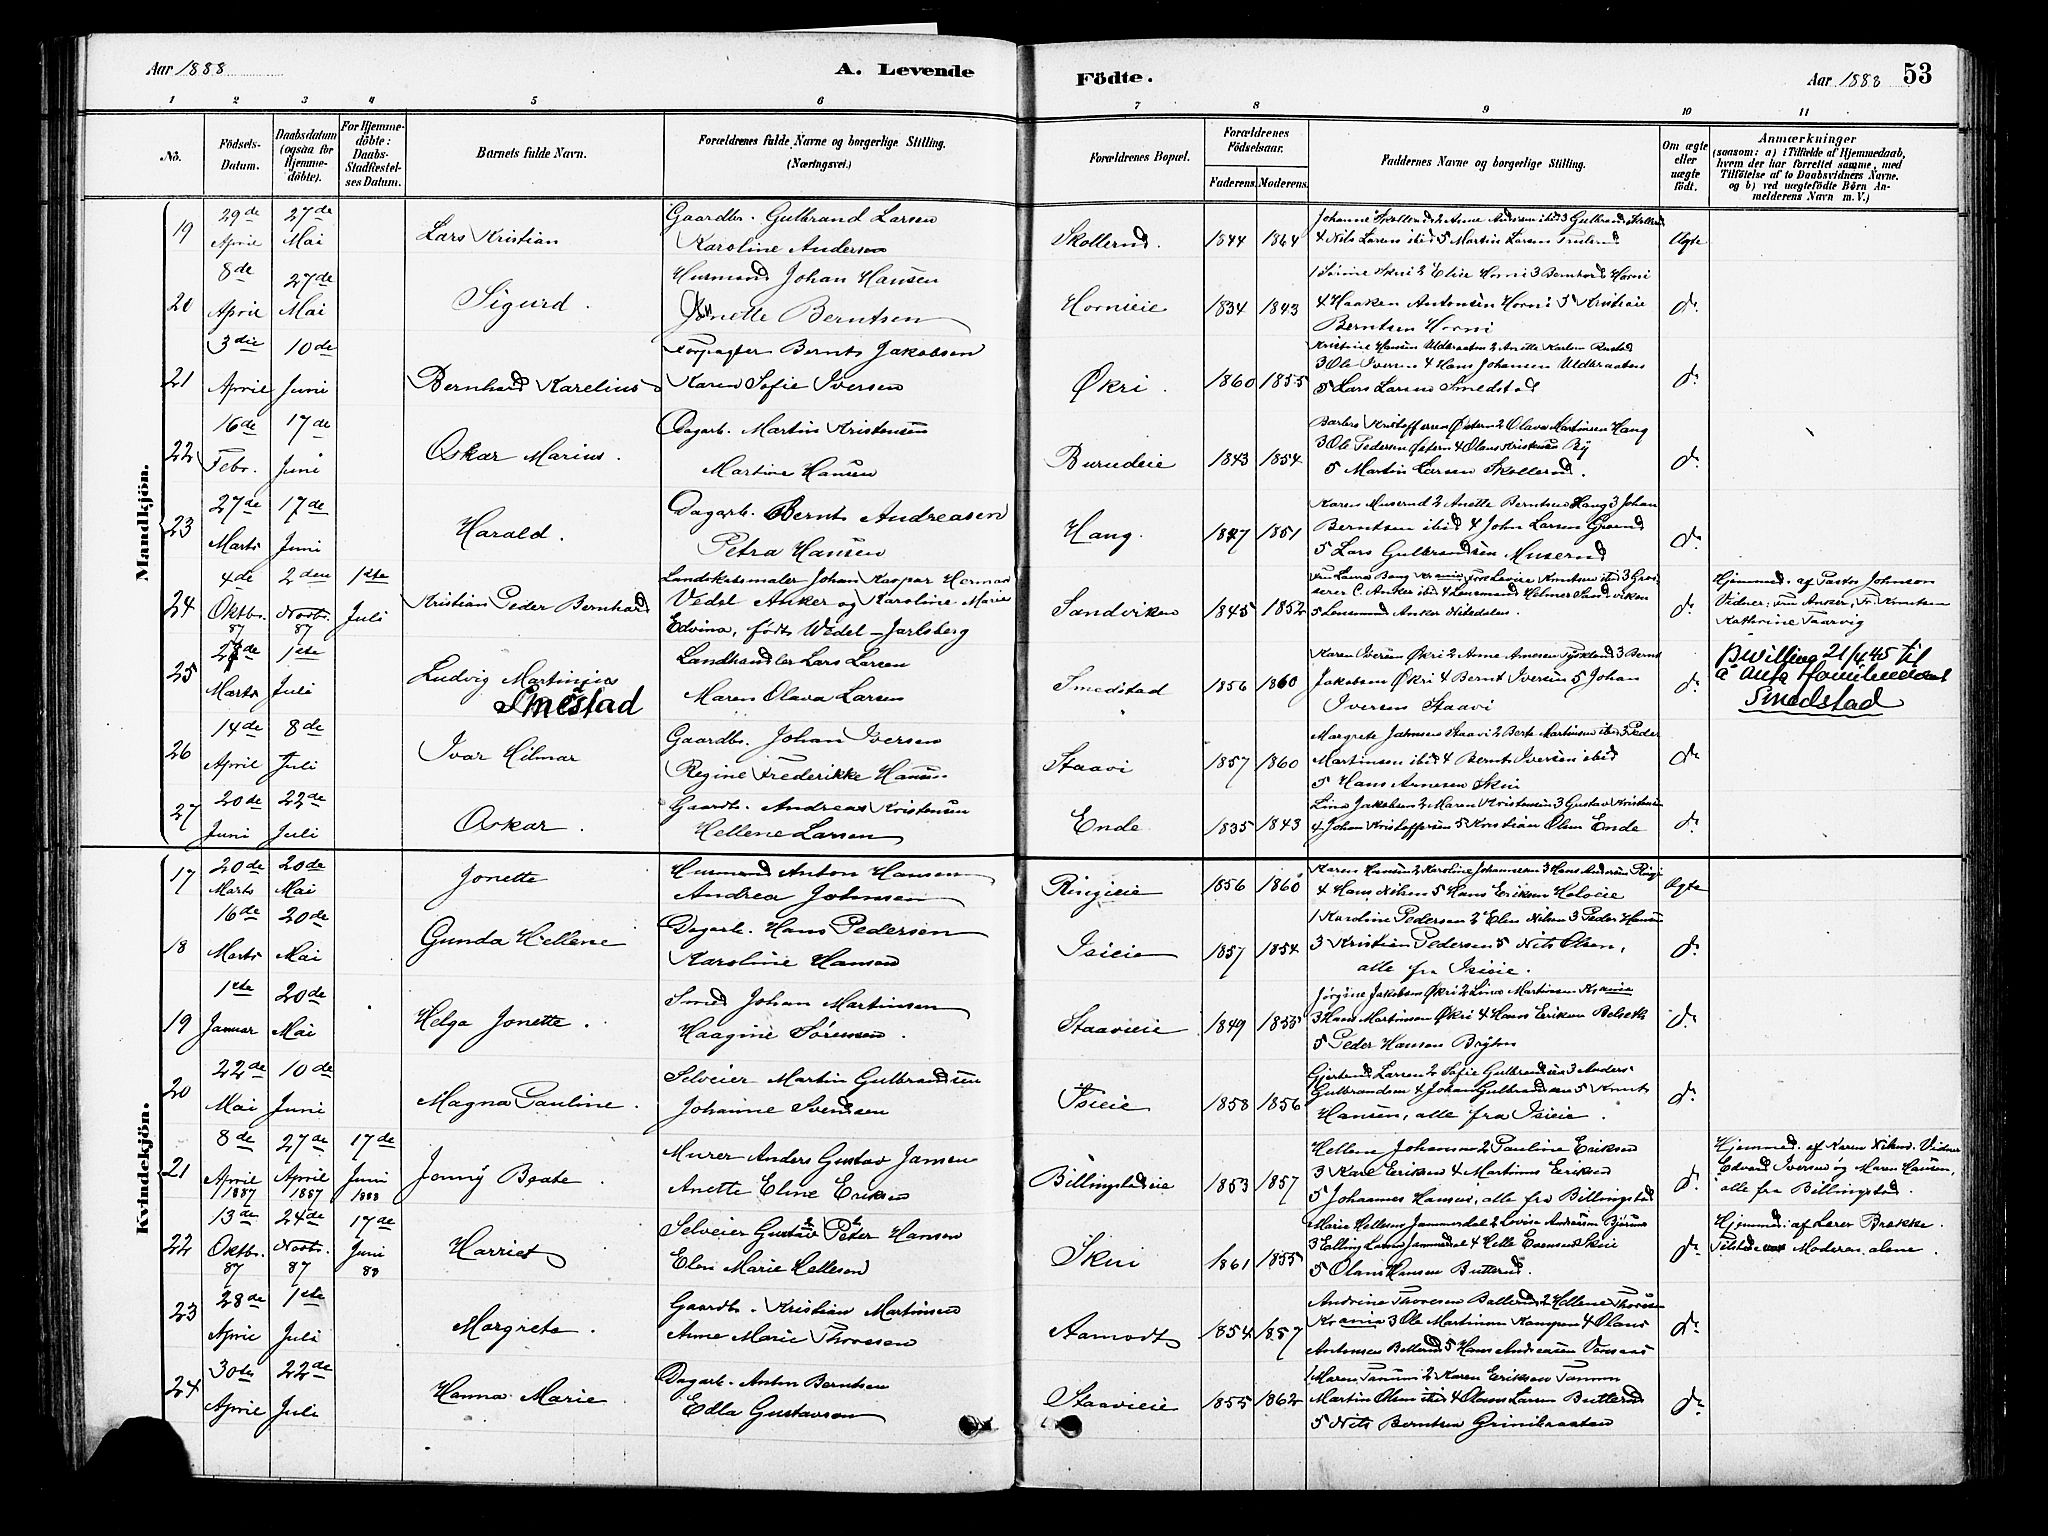 Aar 1888
A. Levende
Födte.
Aar 1888
53
1 2 3 4 5 6 7 8 9 10 11
No.
Födsels-Datum.
Daabsdatum (ogsaa for Hjemme-döbte).
For Hjemme-döbte: Daabs-Stadfæstel-ses Datum.
Barnets fulde Navn.
Forældrenes fulde Navne og borgerlige Stilling. (Næringsvei.)
Forældrenes Bopæl.
Forældrenes Födselsaar.
Faderens. Moderens.
Faddernes Navne og borgerlige Stilling.
Om ægte eller uægte født.
Anmærkninger
(saasom: a) i Tilfælde af Hjemmedaab, hvem der har forrettet samme, med Tilföielse af to Daabsvidners Navne. og b) ved uægtefödte Börn An-melderens Navn m. V.)
Mandkjön.
19 29de April 27de Mai Lars Kristian Gaardbr. Gulbrand Larsen Karoline Andersen Skollerud. 1844 1864 4 Nils Larsen ibid 5 Martin Larsen Ægte
20 8de April 27de Mai Sigurd. Husmand Johan Hansen Berntsen Hornieie 1834 1843 4 Haaken Antonsen Horni 5 Kristian Berntsen Horni do
21 3die April 10de Juni Bernhard Karelius Forpagter Bernt Jakobsen Karen Sofie Iversen Økri. 1860 1855 3 Ole Iversen 4 Hans Johansen Uldbraaten 5 Lars Larsen Smedstad do
22 16de Febr. 17de Juni Oskar Marius. Dagarb. Martin Kristensen Martine Hansen Burudeie 1843 1854 3 Ole Pedersen Østern 4 Olaus Kristensen By 5 Martin Larsen Skollerud. do
23 27de Marts 17de Juni Harald. Dagarb. Bernt Andreasen Petra Hansen Haug. 1847 1851 Karen Muserud 2 Anette Berntsen Haug 3 Johan Berntsen ibid 4 John Larsen 5 Lars Gulbrandsen Muserud do
24 4de Oktbr. 87 2den Novbr. 87 1ste Juli Kristian Peder Bernhard Landskabsmaler Johan Kaspar Herman Vedel Anker og Karoline Marie Edvina, født Wedel-Jarlsberg Sandviken 1845 1852 5 Lensmand Anker Nitedalen. do Hjemmed. af Pastor Johnson Vidner: Fru Anker, Fr. Knutsen Kathrine Taarvig
25 27de Marts 1ste Juli Ludvig Martinius Smestad Landhandler Lars Larsen Maren Olava Larsen Smedstad 1856 1860 Karen Iversen Økri 2 Anne Arnesen Tyskland 3 Bernt Jakobsen Økri 4 Bernt Iversen 5 Johan Iversen Staavi do Bevilling 21/4 45 til å anta familienavnet Smedstad
26 14de April 8de Juli Ivar Hilmar Gaardbr. Johan Iversen Regine Frederikke Hansen Staavi 1857 1860 Margrete Staavi 2 Berte Martinsen ibid 3 Peder Martinsen ibid 4 Bernt Iversen ibid 5 Hans Arnesen Skui do
27 20de Juni 22de Juli Oskar. Gaardb. Andreas Kristensen Hellene Larsen Ende 1835 1843 Lina Jakobsen 2 Maren Kristensen 3 Gustav Kristensen 4 Johan Kristoffersen 5 Kristian Olsen Ende do
Kvindekjön.
17 20de Marts 20de Mai Jonette Husmand Anton Hansen Andrea Johnsen Ringieie 1856 1860 Karen Hansen 2 Karoline Johannesen 3 Hans Andersen Ringi 4 Hans Nilsen 5 Hans Eriksen Ægte
18 16de Marts 20de Mai Gunda Hellene Dagarb. Hans Pedersen Karoline Hansen Isieie 1857 1854 1 Karoline Pedersen 2 Elen Nilsen 3 Peder Hansen 3 Kristian Pedersen 5 Nils Olsen, alle fra Isieie. do
19 1ste Januar 20de Mai Helga Jonette. Smed Johan Martinsen Haagine Sørensen. Staavieie 1849 1855 Jørgine Jakobsen Økri 2 Lina Martinsen Krania 3 Hans Martinsen Økri 4 Hans Eriksen 5 Peder Hansen do
20 22de Mai 10de Juni Magna Pauline. Selveier Martin Gulbrandsen Johanne Svendsen Isieie 1858 1856 Gjertrud Larsen 2 Sofie Gulbrandsen 3 Anders Gulbrandsen 4 Johan Gulbrandsen 5 Knut Hansen, alle fra Isieie. do
21 8de April 1887 27de April 1887 17de Juni 1888 Jenny Beate. Murer Anders Gustav Jansen Anette Eline Eriksen Billingstadeie 1853 1857 Hellene Johansen 2 Pauline Eriksen 3 Karl Eriksen 4 Martinus Eriksen 5 Johannes Hansen, alle fra Billingstad do Hjemmed. af Karen Nilsen. Vidner Edvard Iversen og Maren Hansen, alle fra Billingstad.
22 13de Oktbr. 87 24de Novbr. 87 17de Juni 88 Harriet Selveier Gustav Peter Hansen Elen Marie Hellesen Skui 1861 1855 Marie Hellesen Jammerdal 2 Lovise Andersen 3 Elling Larsen Jammerdal 4 Helle Skui 5 Olaus Hansen Butterud. do Hjemmed. af Lærer Brække. Tilstede var Moderen alene.
23 28de April 1ste Juli Margrete. Gaardb. Kristian Martinsen Anne Marie Thoresen Aamodt 1854 1857 Andrine Thoresen 2 Hellene Thoresen Krania 3 Ole Martinsen Kampen 4 Olaus Antonsen 5 Hans Andreasen do
24 30te April 22de Juli Hanna Marie Dagarb. Anton Berntsen Edla Gustavson Staavieie 1855 1862 1 Maren Tanum 2 Karen Eriksen Tanum Martin Olsen ibid 4 Olaus Larsen Butterud 5 Nils Berntsen Grinibraaten do